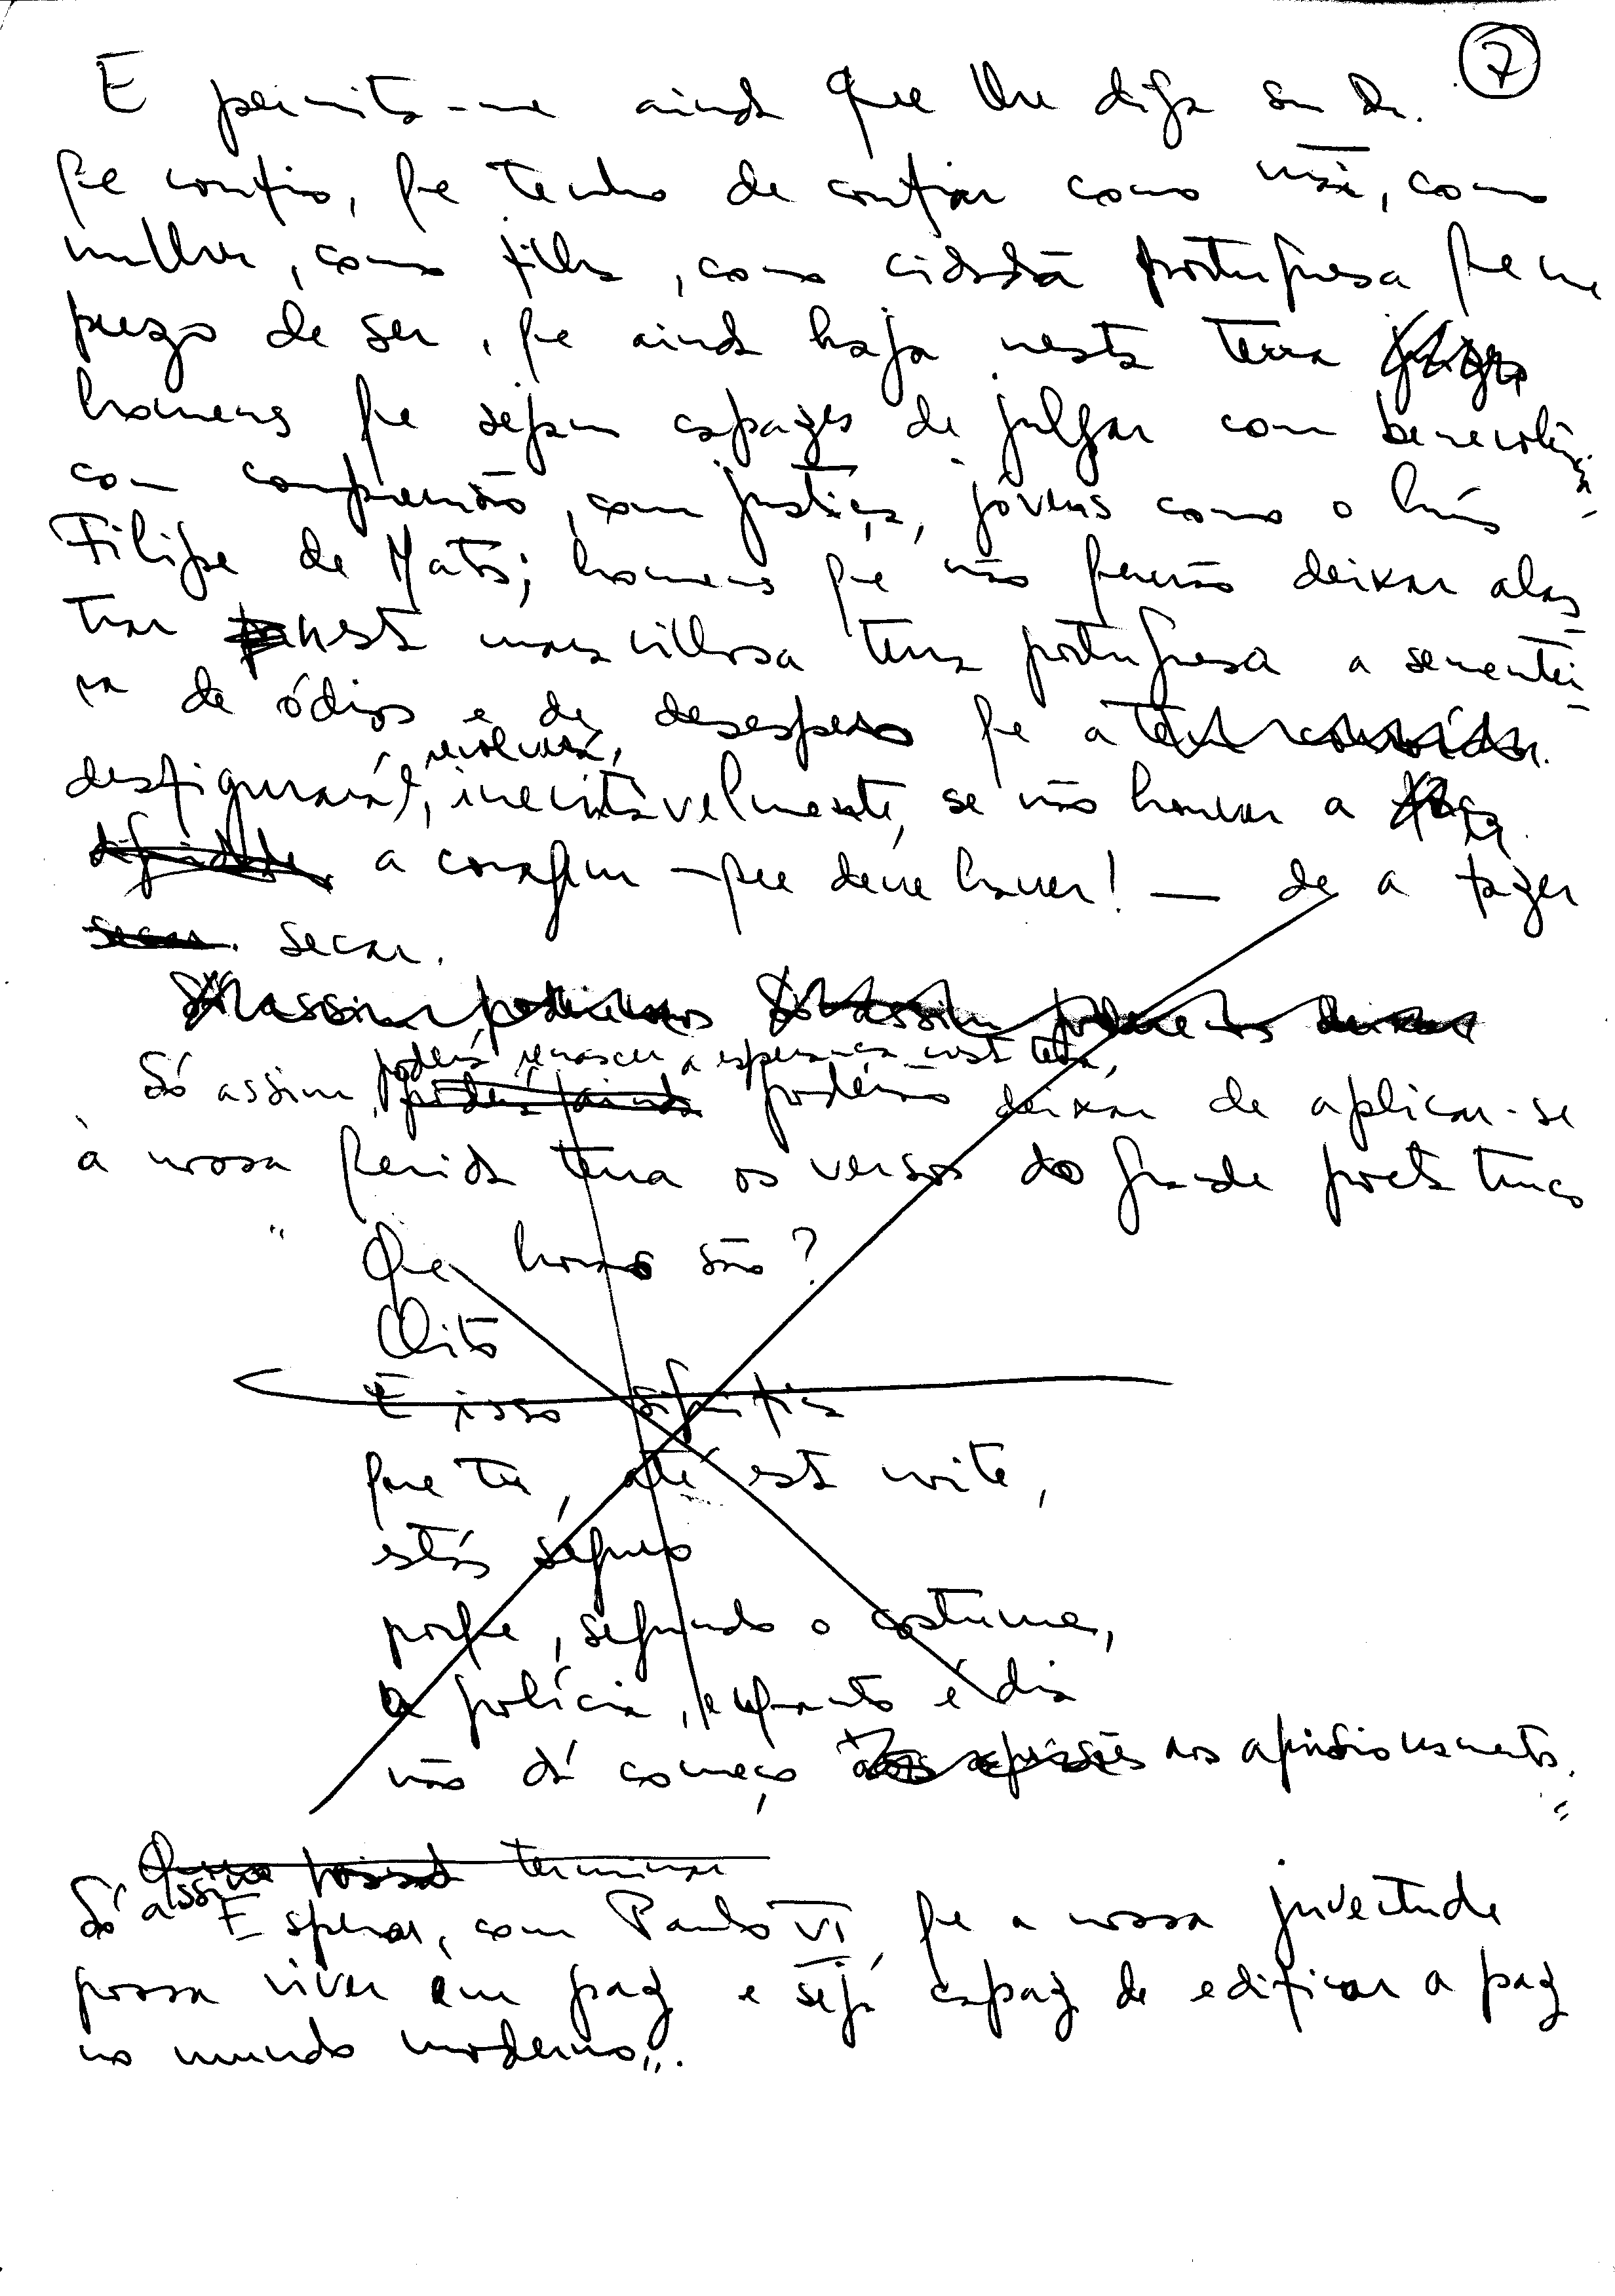 7
E permita-me ainda que lhe diga Sr. Dr.
que confio, que tenho de confiar como mãe, como
mulher, como filha, como cidadã portuguesa que me
prezo de ser, que ainda haja nesta terra
homens que sejam capazes de julgar com benevolência
com compreensão, com justiça, jovens como o Luís
Filipe de Matos; homens que não quererão deixar alas
trar nesta maravilhosa terra portuguesa a sementei
ra de ódios e de desespero que a
revolverá,
desfigurará, inevitávelmente, se não houver a força
dignidade a coragem — que deve haver! — de a fazer
secar. secar.
Só assim poderemos Só assim poderemos deixar
poderá renascer a esperança nesta terra,
Só assim, poderá ainda poderão deixar de aplicar-se
à nossa querida terra os versos do grande poeta turco
" Que horas são?
Oito
E isso significa
que tu, até esta noite,
estás seguro
porque, segundo o costume,
a polícia, enquanto é dia
não dá começo aos aprisionamentos.
"
terminar
Só assim Esperar, com Paulo VI, que a nossa juventude
possa viver em paz e seja capaz de edificar a paz
no mundo moderno".